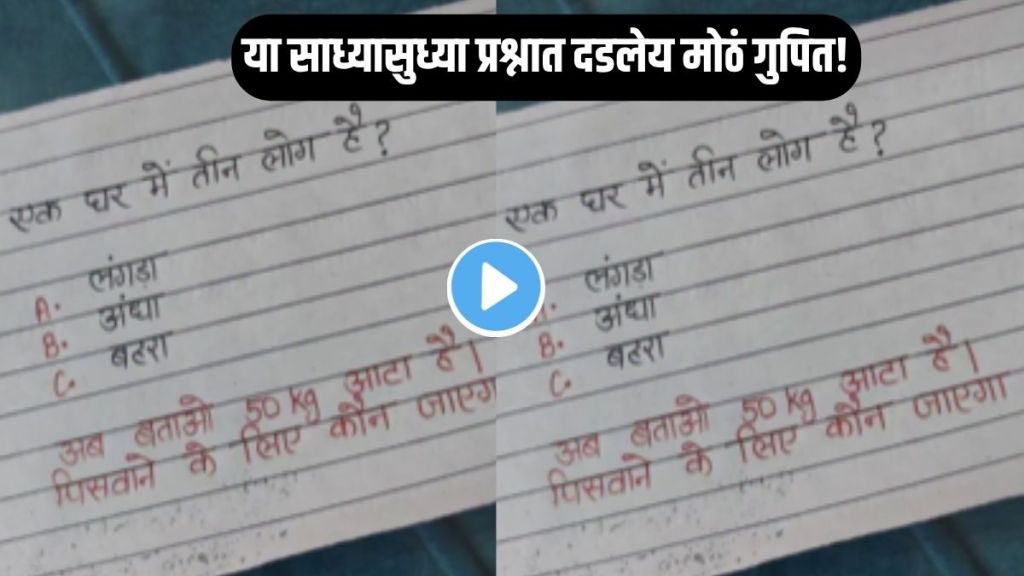 या साध्यासुध्या प्रश्नात दडलेय मोठं गुपित!
एक घर में तीन लोग है ?
A. लंगड़ा
B. अंधा
C. बहरा
अब बताओ 50 kg आटा है।
पिसवाने के लिए कौन जाएगा
एक घर में तीन लोग है ?
A. लंगड़ा
B. अंधा
C. बहरा
अब बताओ 50 kg आटा है।
पिसवाने के लिए कौन जाएगा